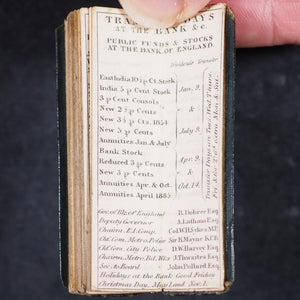 TRANSFER DAYS
AT THE BANK &c.
PUBLIC FUNDS & STOCKS
AT THE BANK OF ENGLAND.
Dividends Transfer
East India 10½ p Ct. Stock
India 5 p Cent Stock
3 p Cent Consols
New 2½ p Cents
New 3½ p Cts. 1854
New 5 p Cents
Annuities Jan. & July
Bank Stock
Reduced 3 p Cents
New 3 p Cents
Annuities Apr. & Oct.
Annuities April 1885
Jan. 9.
July 9.
Apr. 9.
Oct. 14.
Gov. of Bk. of England B. Dobree Esq
Deputy Governor A. Latham Esq
Chairn. E.I. Comp. Col. W.H. Sykes MP.
Chf. Com. Metro. Police Sir R. Mayne K.C.B.
Chf. Com. City Police D.W. Harvey Esq
Chairn. Metro. Bd. Wks J. Thwaites Esq
Sec. to Board John Pollard Esq
Holidays at the Bank Good Friday
Christmas Day, May 1 and Nov. 1.